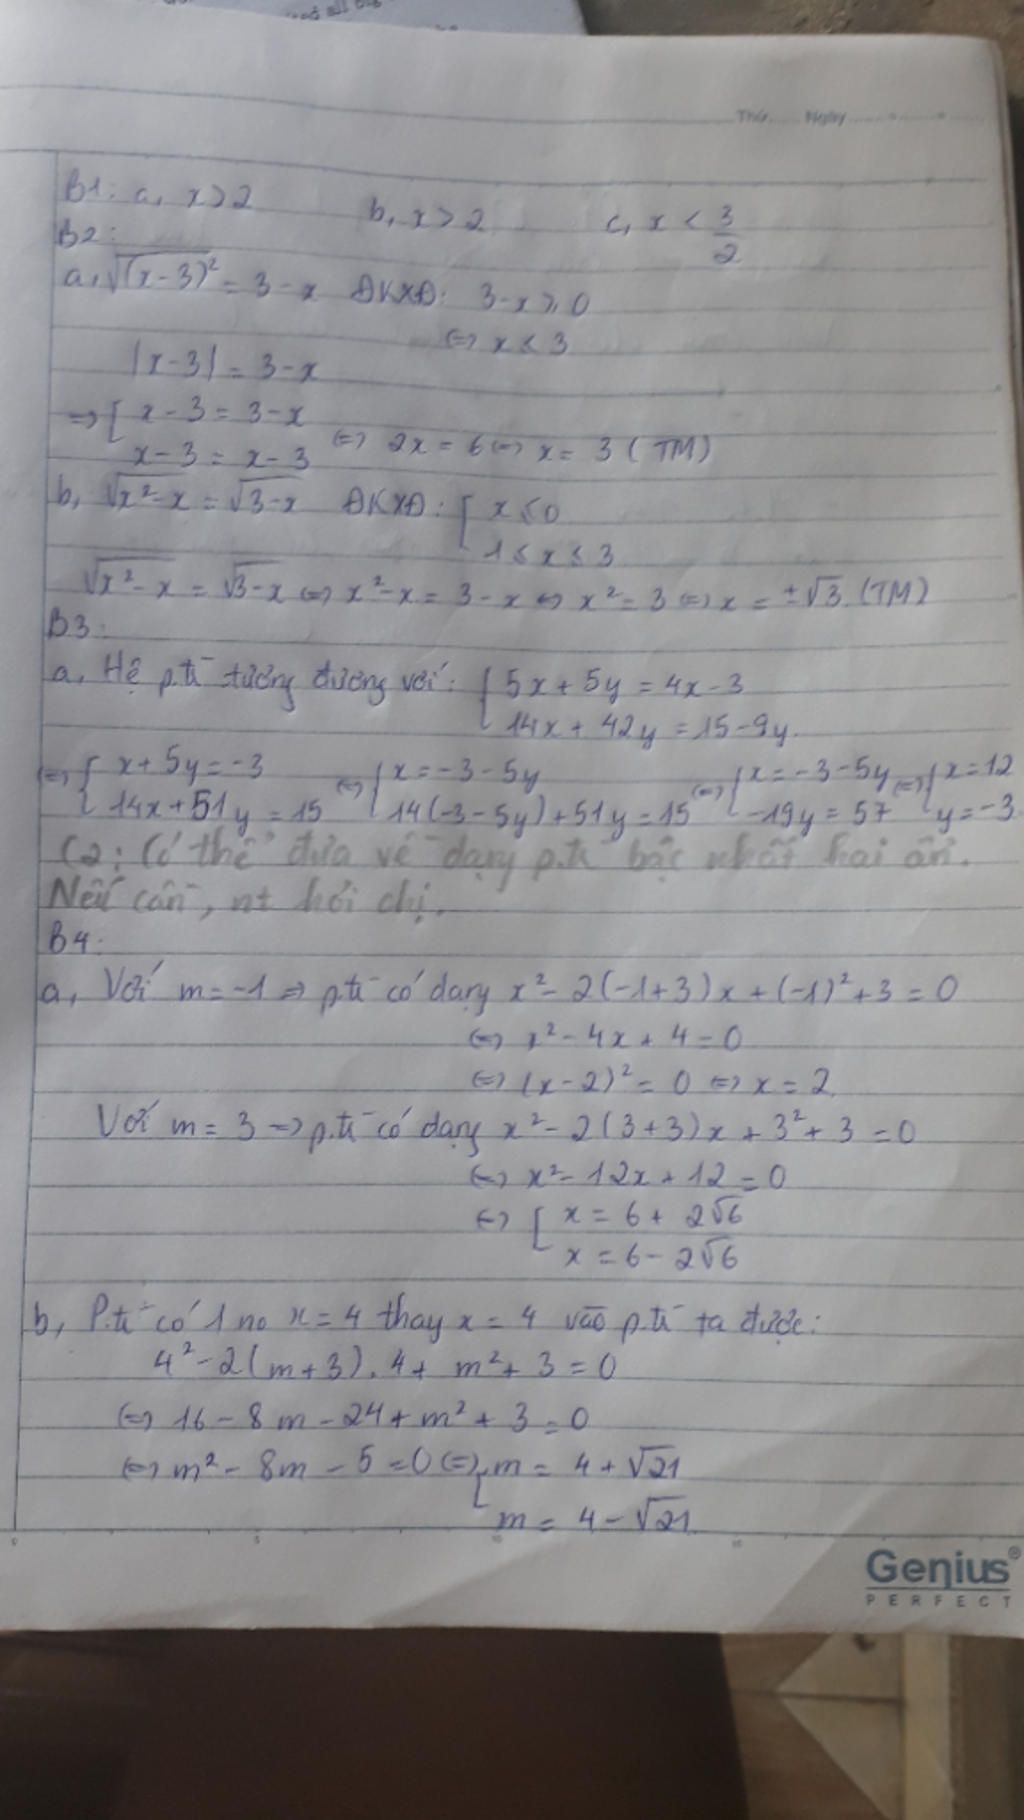 Thứ...... Ngày...............
B1: a, x > 2 b, x > 2 c, x < 3/2
B2:
a, √(x-3)² = 3-x ĐKXĐ: 3-x ≥ 0
⇔ x ≤ 3
|x-3| = 3-x
⇒ [ x-3 = 3-x
x-3 = x-3 ⇔ 2x = 6 ⇔ x = 3 (TM)
b, √x²-x = √3-x ĐKXĐ: [ x ≤ 0
1 ≤ x ≤ 3
√x²-x = √3-x ⇔ x²-x = 3-x ⇔ x² = 3 ⇔ x = ±√3 (TM)
B3:
a, Hệ p.tr tương đương với: { 5x + 5y = 4x-3
14x + 42y = 15-9y.
⇔ { x+5y = -3 ⇔ { x = -3-5y ⇔ { x = -3-5y ⇔ { x = 12
14x+51y = 15 14(-3-5y)+51y = 15 -19y = 57 y = -3.
C2: Có thể đưa về dạng p.tr bậc nhất hai ẩn.
Nếu cần, nt hỏi chị.
B4:
a, Với m = -1 ⇒ p.tr có dạng x² - 2(-1+3)x + (-1)² + 3 = 0
⇔ x² - 4x + 4 = 0
⇔ (x-2)² = 0 ⇔ x = 2.
Với m = 3 ⇒ p.tr có dạng x² - 2(3+3)x + 3² + 3 = 0
⇔ x² - 12x + 12 = 0
⇔ [ x = 6 + 2√6
x = 6 - 2√6
b, P.tr có 1 no x = 4 thay x = 4 vào p.tr ta được:
4² - 2(m+3).4 + m² + 3 = 0
⇔ 16 - 8m - 24 + m² + 3 = 0
⇔ m² - 8m - 5 = 0 ⇔ [ m = 4 + √21
m = 4 - √21.
0 5 10 15
Genius®
PERFECT